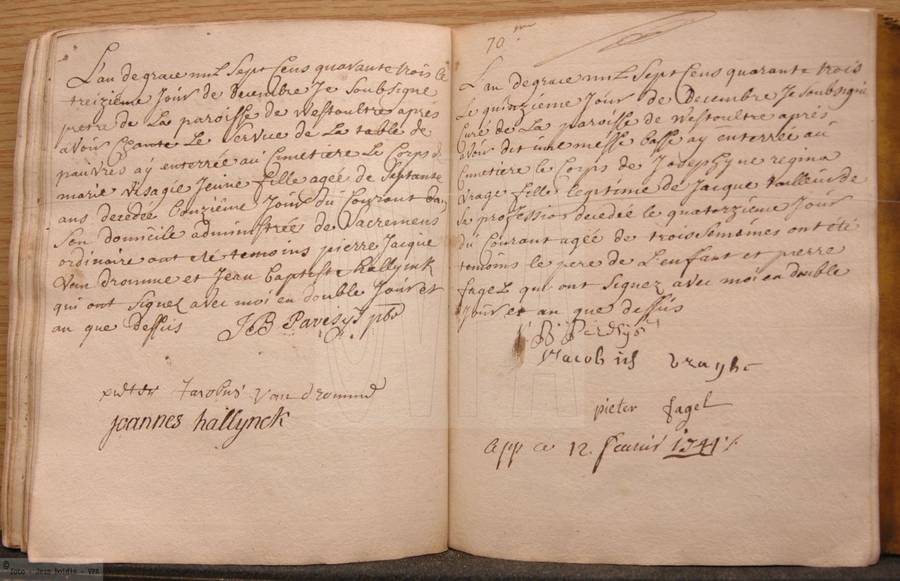 L'an de grace mil sept cens quarante trois le
treizieme jour de decembre je soubsigné
pretre de la paroisse de Westoultre apres
avoir chanté le service de la table de
pauvres ay enterrée au cimetiere le corps de
marie visagie jeune fille agée de septante
ans decedée l'onzième jour du courant dans
son domicile administrée de sacremens
ordinaire ont été temoins pierre jacque
Van dromme et jean baptiste hallynck
qui ont signez avec moi en double jour et
an que dessus JB Pavesys pbr
pieter Jacobus van dromme
joannes hallynck
70
L'an de grace mil sept cens quarante trois
le quinzieme jour de decembre je soubsigné
curé de la paroisse de Westoultre apres
avoir dit une messe basse ay enterrée au
cimetiere le corps de josephyne regina
vrage fille legitime de jacque tailleur de
sa profession decedée le quatorzième jour
du courant agée de trois semaines ont été
temoins le pere de l'enfant et pierre
fagel qui ont signez avec moi en double
jour et an que dessus
Jacobus
pieter fagel
app ce 12 1744
foto - Jean